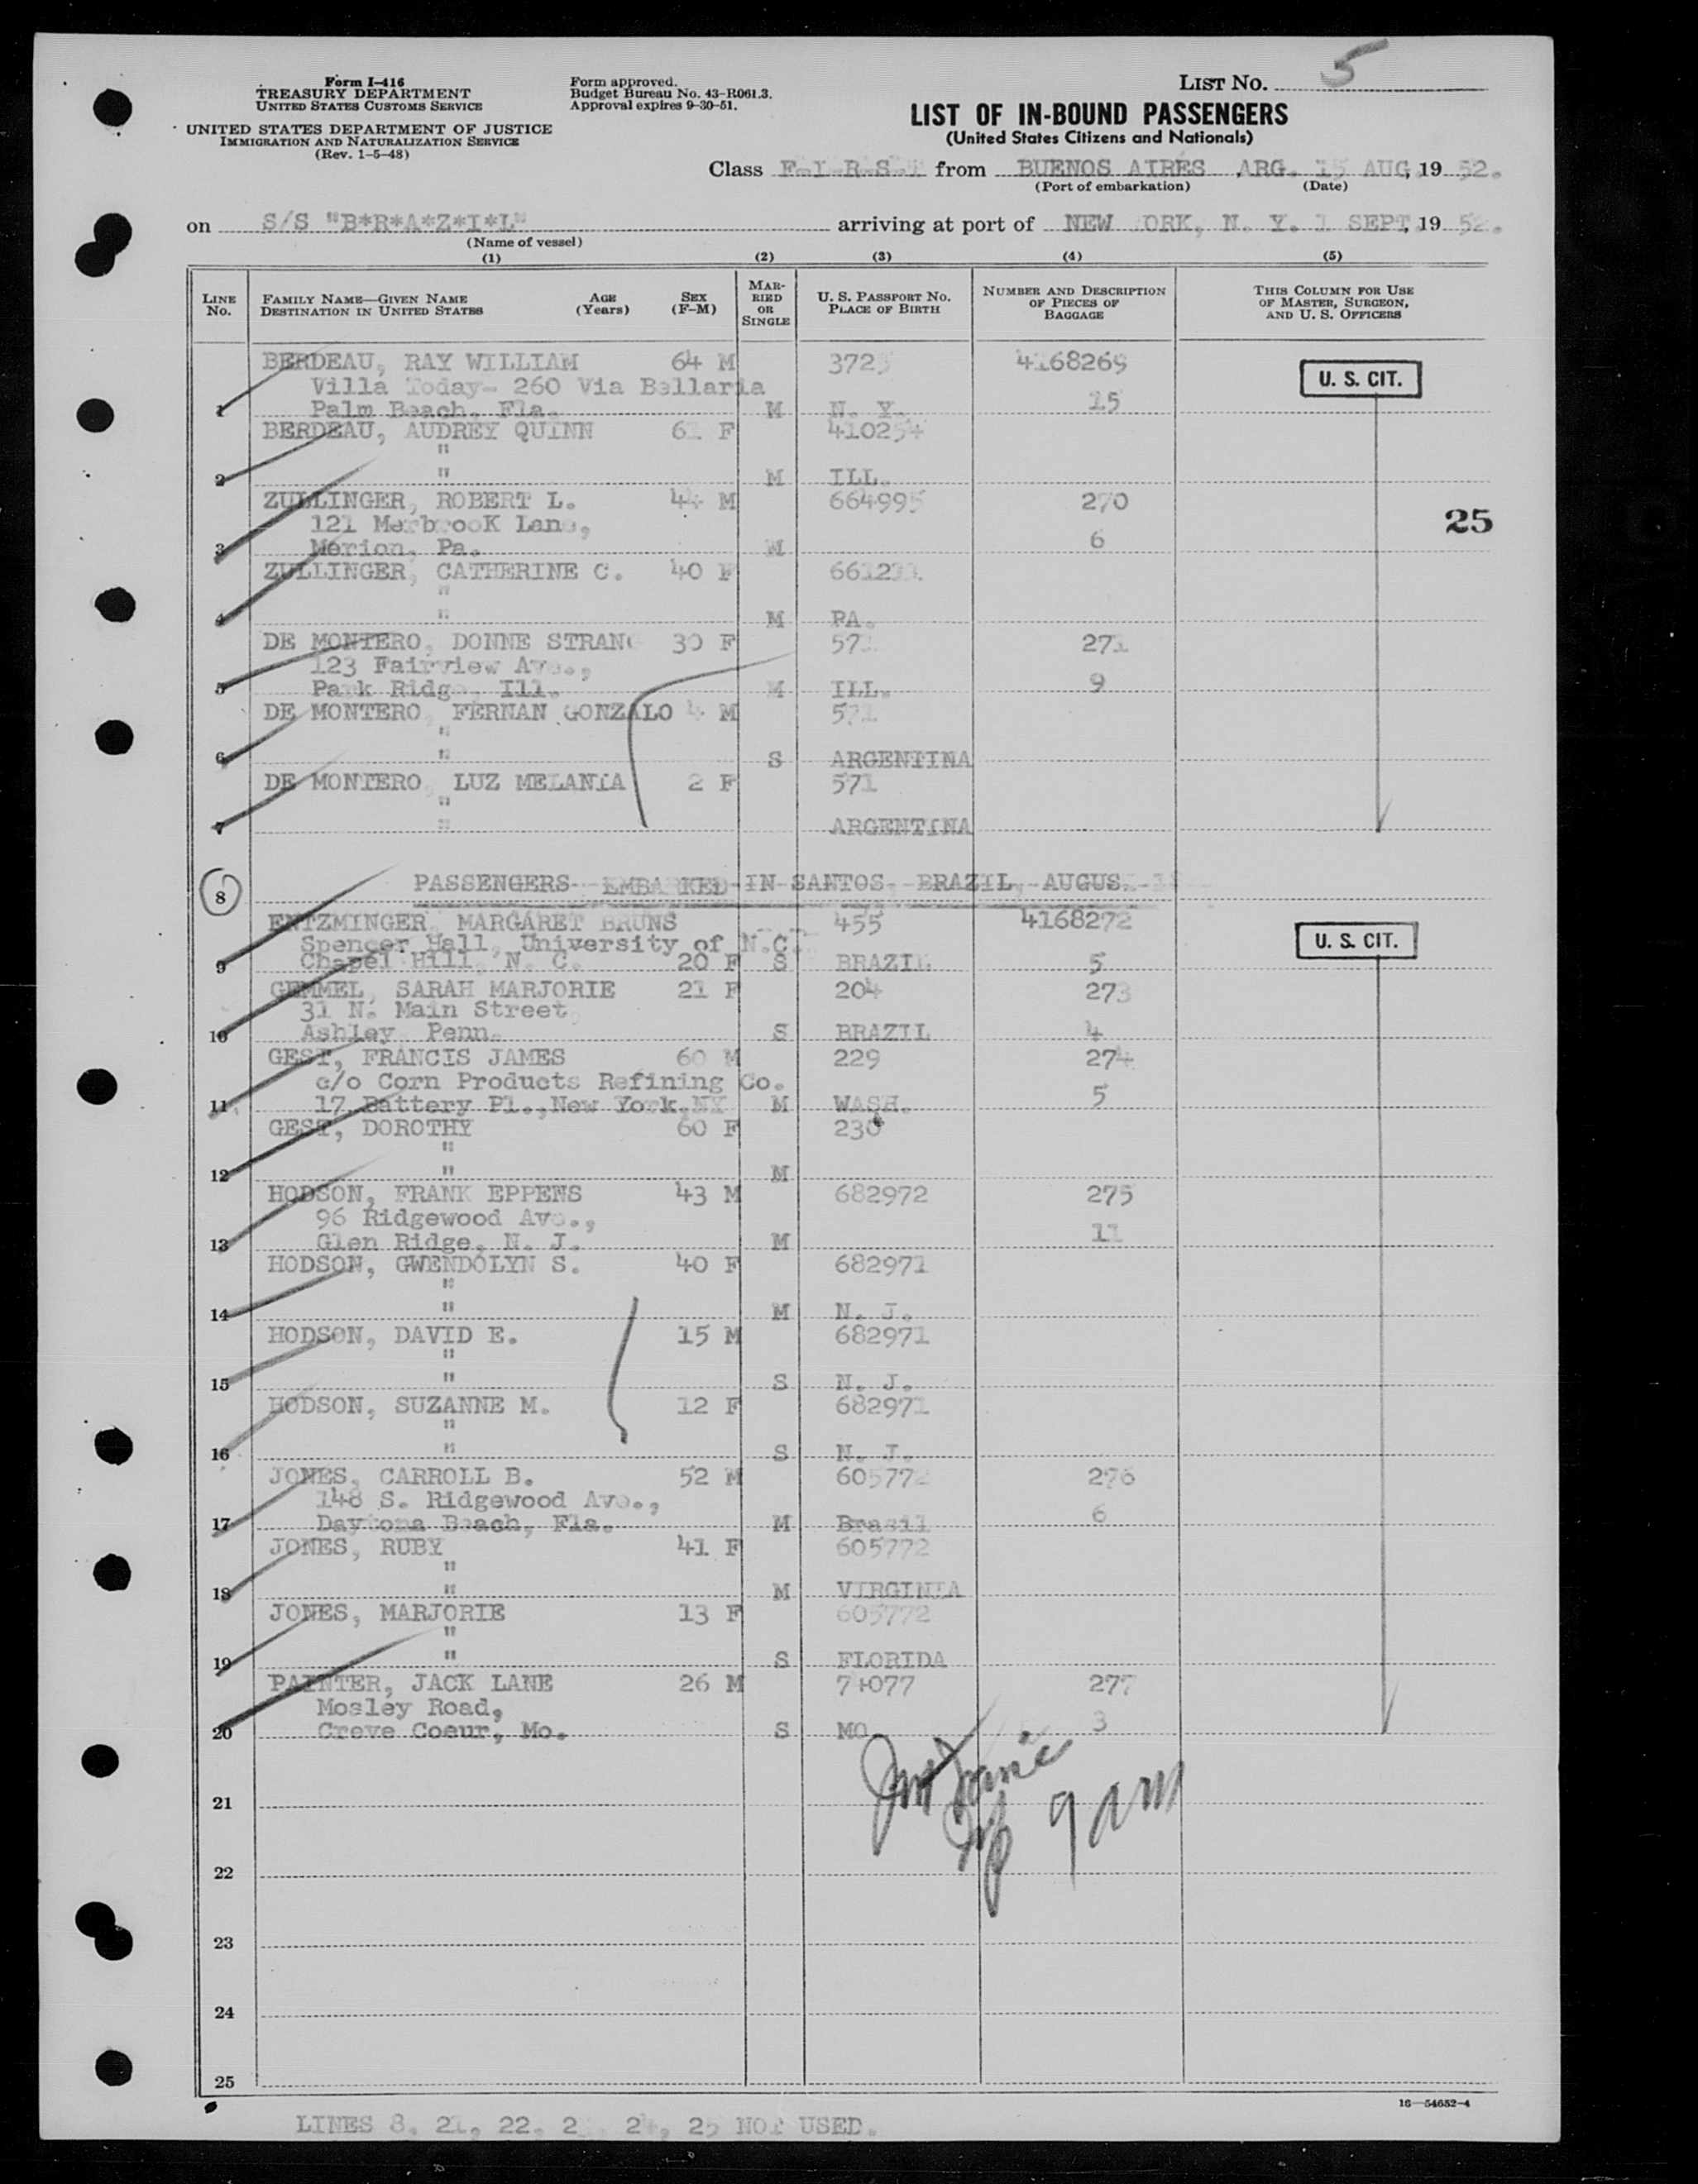 Form I-416
TREASURY DEPARTMENT
UNITED STATES CUSTOMS SERVICE
UNITED STATES DEPARTMENT OF JUSTICE
IMMIGRATION AND NATURALIZATION SERVICE
(Rev. 1-5-48)
Form approved.
Budget Bureau No. 43-R061.3.
Approval expires 9-30-51.
LIST NO. 5
LIST OF IN-BOUND PASSENGERS
(United States Citizens and Nationals)
Class F-I-R-S- from BUENOS AIRES, ARG. 15 AUG, 19 52.
(Port of embarkation) (Date)
on S/S "B*R*A*Z*I*L" arriving at port of NEW ORK, N. Y. 1 SEPT, 19 52.
(Name of vessel)
(1) (2) (3) (4) (5)
LINE NO. FAMILY NAME—GIVEN NAME DESTINATION IN UNITED STATES AGE (Years) SEX (F-M) MARRIED OR SINGLE U. S. PASSPORT NO. PLACE OF BIRTH NUMBER AND DESCRIPTION OF PIECES OF BAGGAGE THIS COLUMN FOR USE OF MASTER, SURGEON, AND U. S. OFFICERS
BERDEAU, RAY WILLIAM 64 M 372 4168269 U. S. CIT.
Villa Today- 260 Via Bellaria 15
1 Palm Beach, Fla. M N. Y.
BERDEAU, AUDREY QUINN 61 F 410254
"
2 " M ILL.
ZULLINGER, ROBERT L. 44 M 664995 270
121 Merbrook Lane, 25
3 Merion, Pa. M 6
ZULLINGER, CATHERINE C. 40 F 66121
"
4 " M PA.
DE MONTERO, DONNE STRANG 30 F 571 271
123 Fairview Ave.,
5 Park Ridge, Ill. M ILL. 9
DE MONTERO, FERNAN GONZALO 4 M 571
"
6 " S ARGENTINA
DE MONTERO, LUZ MELANIA 2 F 571
"
7 " ARGENTINA
8 PASSENGERS- -EMBARKED-IN-SANTOS- -BRAZIL,-AUGUS
ENTZMINGER, MARGARET BRUNS 455 4168272
Spencer Hall, University of N.C. U. S. CIT.
9 Chapel Hill, N. C. 20 F S BRAZIL 5
GEMMEL, SARAH MARJORIE 21 F 204 273
31 N. Main Street,
10 Ashley, Penn. S BRAZIL 4
GEST, FRANCIS JAMES 60 M 229 274
c/o Corn Products Refining Co.
11 17 Battery Pl.,New York,NY M WASH. 5
GEST, DOROTHY 60 F 230
"
12 " M
HODSON, FRANK EPPENS 43 M 682972 275
96 Ridgewood Ave.,
13 Glen Ridge, N. J. M 11
HODSON, GWENDOLYN S. 40 F 682971
"
14 " M N. J.
HODSON, DAVID E. 15 M 682971
"
15 " S N. J.
HODSON, SUZANNE M. 12 F 682971
"
16 " S N. J.
JONES, CARROLL B. 52 M 605772 276
148 S. Ridgewood Ave.,
17 Daytona Beach, Fla. M Brasil 6
JONES, RUBY 41 F 605772
"
18 " M VIRGINIA
JONES, MARJORIE 13 F 605772
"
19 " S FLORIDA
PAINTER, JACK LANE 26 M 74077 277
Mosley Road,
20 Creve Coeur, Mo. S MO 3
21
9 AM
22
23
24
25
16—54652-4
LINES 8, 21, 22, 2 24, 25 NOT USED.